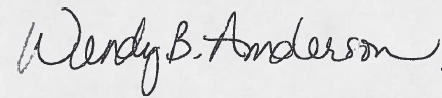 Wendy B. Anderson